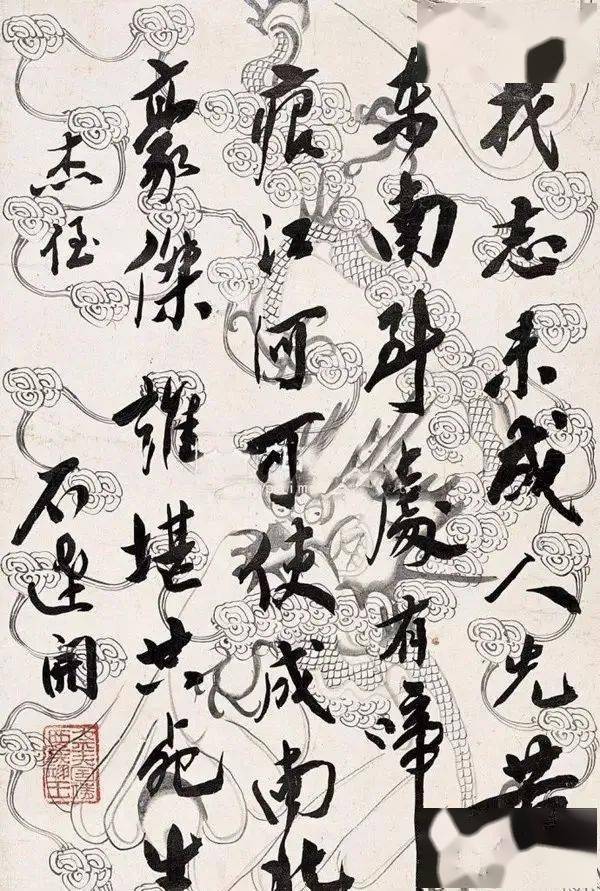 我志未成人先苦
東南到處有啼
痕江河可使成南北
豪傑誰堪共死生
杰侄
石達開